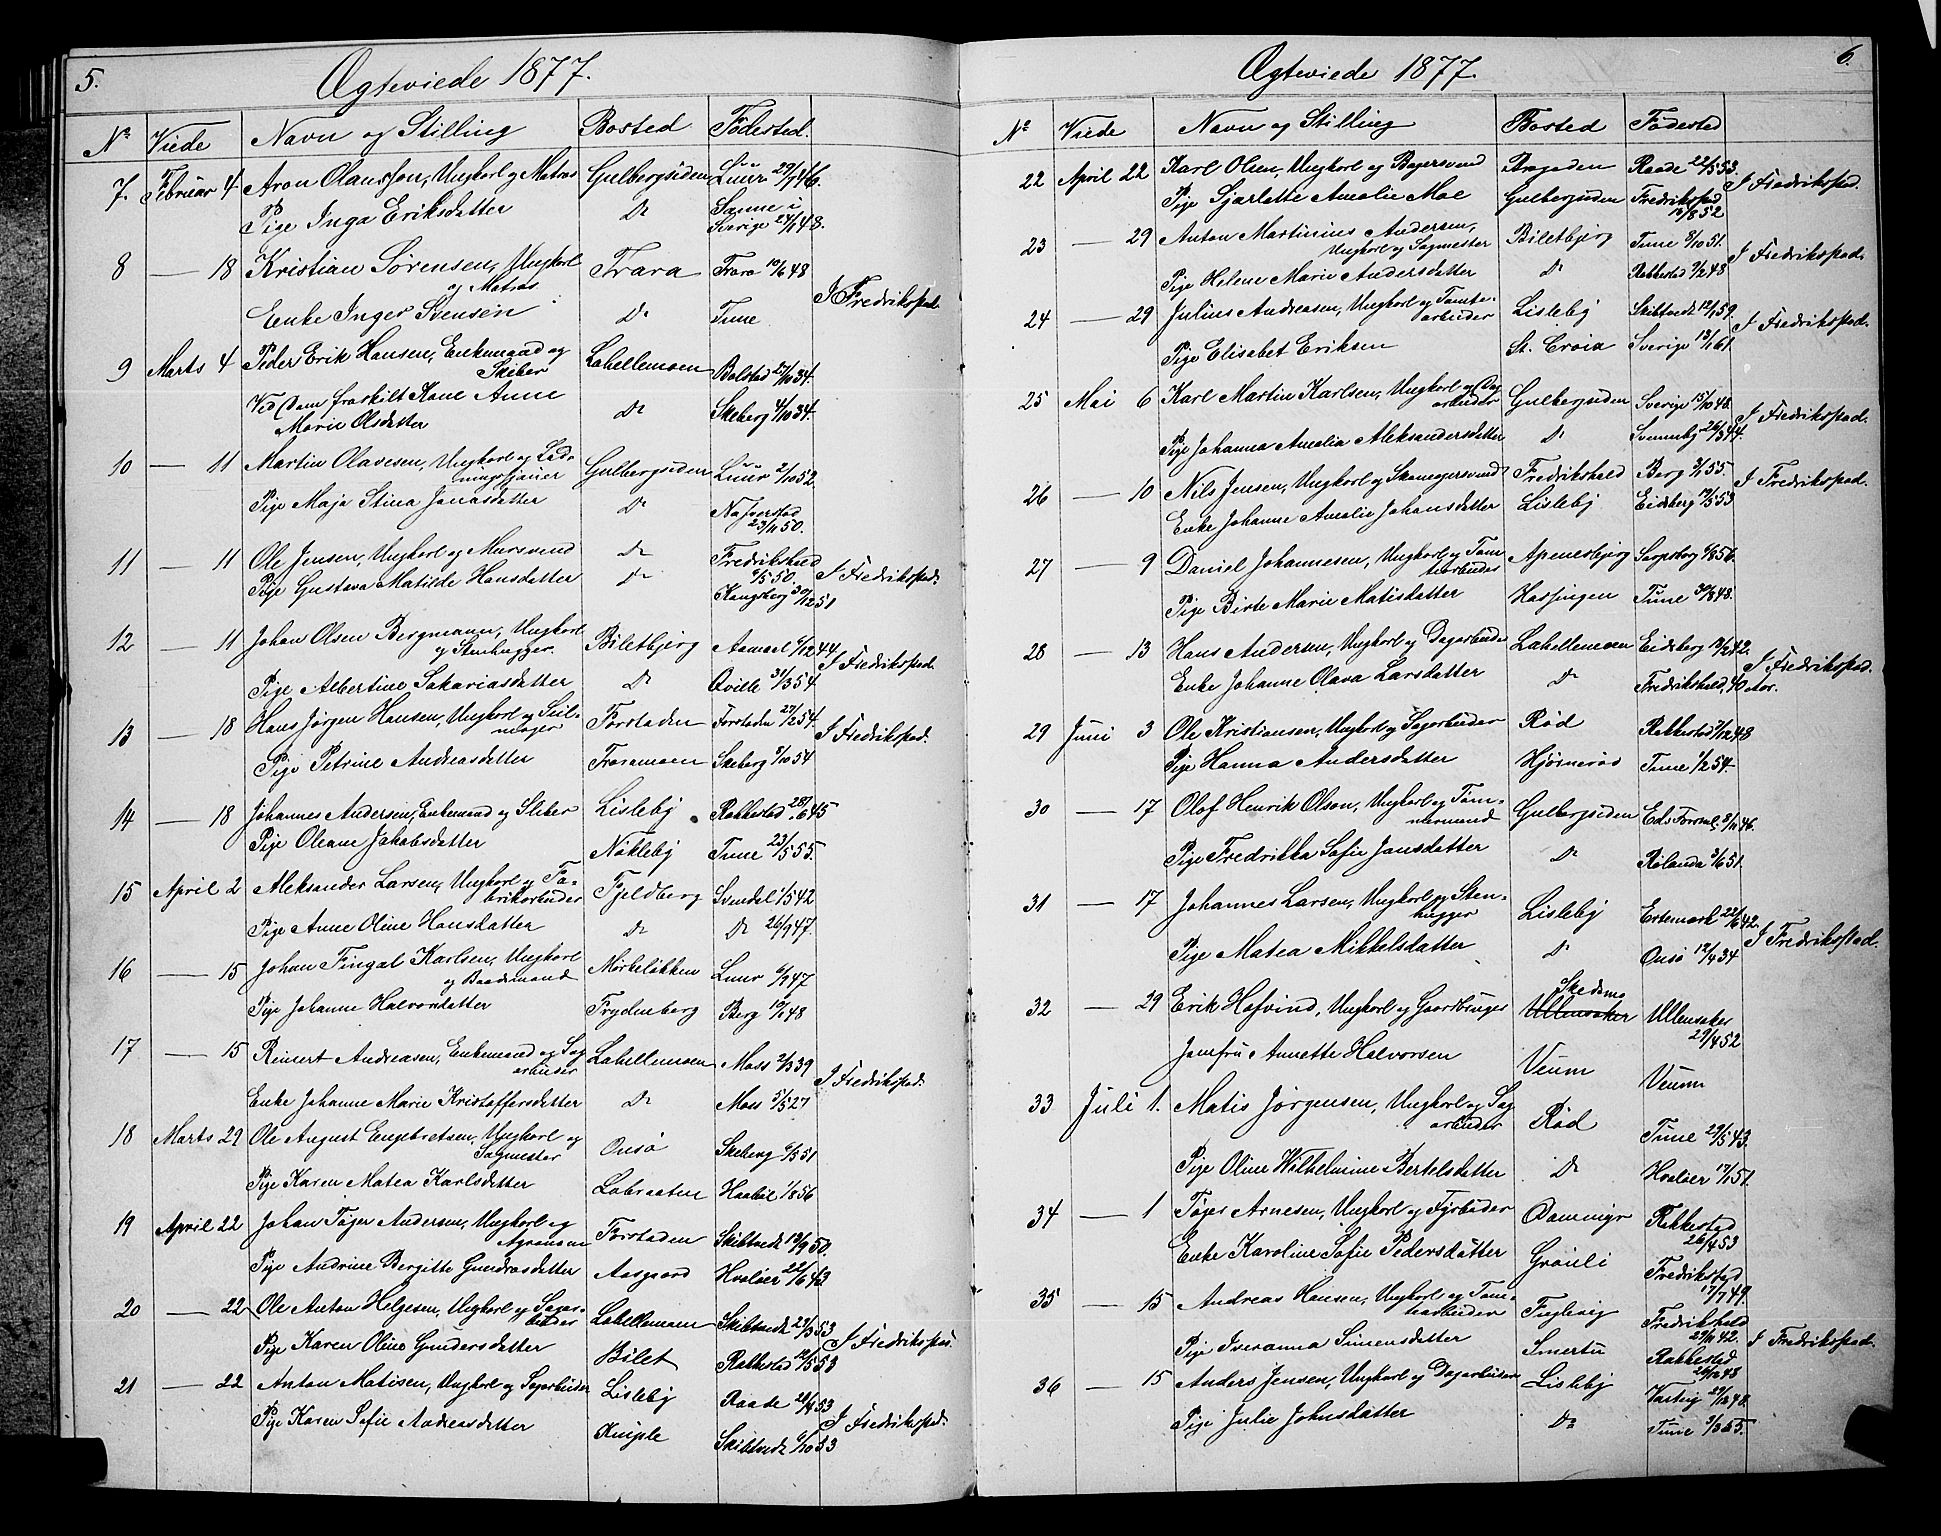 5.
Ægteviede 1877.
No Viede Navn og Stilling Bosted Fødested.
7. Februar 4 Aron Olansson, Ungkarl og Matros Gulbergsiden Luur 29/7 46.
Pige Inga Eriksdatter Do Sanne i
Sverige 24/1 48.
8 — 18 Kristian Sørensen, Ungkarl Trara Trara 10/6 48
og Matros I Fredrikstad
Enke Inger Svensen Do Tune
9 Marts 4 Peder Erik Hansen, Enkemand og Labellemoen Bolstad 27/10 34.
Skiber
Ved Dom fraskilt Kone Anne Do Skeberg 4/10 34.
Marie Olsdatter
10 — 11 Martin Olavesen, Ungkarl og Lad- Gulbergsiden Luur 2/10 52
ningsfører
Pige Maja Stina Jonasdatter Do Naverstad
23/11 50.
11 — 11 Ole Jensen, Ungkarl og Mursvend Do Fredrikshald
6/5 50. I Fredrikstad.
Pige Gustava Matilde Hansdatter Do Kongsberg 30/12 51
12 — 11 Johan Olsen Bergmann, Ungkarl Biletbjerg Aamoel 6/12 44
og Stenhugger. I Fredrikstad.
Pige Albertine Sakariasdatter Do Qville 31/3 54
13 — 18 Hans Jørgen Hansen, Ungkarl og Seil- Forstaden Forstaden 27/2 54. I Fredrikstad.
mager
Pige Petrine Andreasdatter Traramoen Skeberg 5/10 54
14 — 18 Johannes Andersen, Enkemand og Sliber Lisleby Rakkestad 28/6 45
Pige Oleane Jakobsdatter Nøkleby Tune 23/5 55.
15 April 2 Aleksander Larsen, Ungkarl og Fa- Fjeldberg Svendal 1/5 42
brikarbeider
Pige Anne Oline Hansdatter Do Do 26/9 47.
16 — 15 Johan Fingal Karlsen, Ungkarl Mørkeløkken Luur 6/9 47
og Baadsmand
Pige Johanne Halvorsdatter Frydenberg Berg 10/1 48
17 — 15 Reinert Andreasen, Enkemand og Sag Labellemoen Moss 2/3 39
arbeider I Fredrikstad.
Enke Johanne Marie Kristoffersdatter Do Moss 5/5 27
18 Marts 29 Ole August Engebretsen, Ungkarl og Onsø Skeberg 6/5 51
Sagmester
Pige Karen Matea Karlsdatter Labraaten Haabøl 1/8 56
19 April 22 Johan Tøger Andersen, Ungkarl og Forstaden Skibtvedt 19/9 50.
Pige Andrine Bergitte Gundrosdatter Aasgaard Hvaløer 22/6 43
20 — 22 Ole Anton Helgesen, Ungkarl og Sagar- Labellemoen Skibtvedt 27/3 53
beider I Fredrikstad.
Pige Karen Oline Gundersdatter Bilet Rakkestad 12/5 53
21 — 22 Anton Matisen, Ungkarl og Sagarbeider Lisleby Raade 28/4 53
I Fredrikstad.
Pige Karen Sofie Andreasdatter Kniple Skibtvedt 6/10 53
6.
Ægteviede 1877.
No Viede Navn og Stilling Bosted Fødested
22 April 22 Karl Olsen, Ungkarl og Bagersvend Brogaden Raade 22/5 53. I Fredrikstad.
Pige Sjarlotte Amalie Moe Gulbergsiden Fredrikstad
13/8 52
23 — 29 Anton Martinius Andersen, Biletbjerg Tune 8/10 51.
Ungkarl og Sagmester I Fredrikstad.
Pige Helene Marie Andersdatter Do Rakkestad 9/2 48
24 — 29 Julius Andreasen, Ungkarl og Tomte- Lisleby Skibtvedt 12/1 59.
arbeider I Fredrikstad.
Pige Elisabet Eriksen St. Croix Sverige 13/1 61
25 Mai 6 Karl Martin Karlsen, Ungkarl og Dag Gulbergsiden Sverige 15/10 48.
arbeider I Fredrikstad.
Pige Johanna Amalia Aleksandersdatter Do Svenneby 26/3 44.
26 — 10 Nils Jensen, Ungkarl og Skomagersvend Fredrikshald Berg 3/1 55. I Fredrikstad.
Enke Johanne Amalie Johansdatter Lisleby Eidsberg 19/5 53
27 — 9 Daniel Johannesen, Ungkarl og Tom Apenesbjerg Sarpsborg 6/8 56.
tearbeider
Pige Birte Marie Matisdatter Hassingen Tune 30/8 48.
28 — 13 Hans Andersen, Ungkarl og Dagarbeider Labellemoen Eidsberg 19/2 42.
I Fredrikstad.
Enke Johanne Olava Larsdatter Do Fredrikshald, 40 Aar.
29 Juni 3 Ole Kristiansen, Ungkarl og Sagarbeider Rød Rakkestad 7/12 48
Pige Hanna Andersdatter Hjørnerød Tune 1/2 54.
30 — 17 Olof Henrik Olson, Ungkarl og Tøm- Gulbergsiden Eds Forsml. 8/11 46.
mermand
Pige Fredrikka Sofie Jansdatter Do Rølanda 3/6 51.
31 — 17 Johannes Larsen, Ungkarl og Sten- Lisleby Ertemark 22/6 42.
hugger I Fredrikstad.
Pige Matea Mikkelsdatter Do Onsø 12/4 34
32 — 29 Erik Hofvind, Ungkarl og Gaardbruger Skedsmo Ullensaker Ullensaker
29/4 52
Jomfru Annette Halvorsen Veum Veum
33 Juli 1. Matis Jørgensen, Ungkarl og Sag Rød Tune 29/5 43.
arbeider
Pige Oline Wilhelmine Bertelsdatter Do Hvaløer 17/1 51.
34 — 1 Tøger Arnesen, Ungkarl og Fyrbøder Dammyr Rakkestad
26/4 53
Enke Karoline Sofie Pedersdatter Grønli Fredrikstad
17/7 49.
35 — 15 Andreas Hansen, Ungkarl og Tom- Fuglevig Fredrikshald
tearbeider 29/11 42.
Pige Iveranna Simensdatter Smertu Rakkestad I Fredrikstad.
26/12 48
36 — 15 Anders Jensen, Ungkarl og Dagarbeider Lisleby Varteig 29/12 48.
Pige Julie Johnsdatter Do Tune 9/3 55.